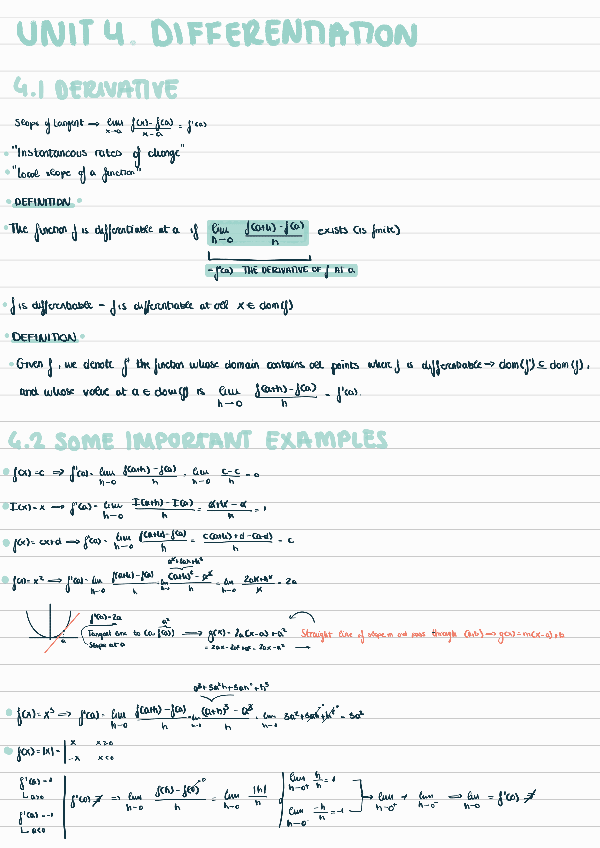 UNIT 4. DIFFERENTIATION
4.1 DERIVATIVE
Slope of tangent → lim x→a f(x)-f(a)/x-a = f'(a)
• "Instantaneous rates of change"
• "Local slope of a function"
• DEFINITION •
• The function f is differentiable at a if lim h→0 f(a+h)-f(a)/h exists (is finite)
= f'(a) THE DERIVATIVE OF f AT a
• f is differentiable = f is differentiable at all x ∈ dom(f)
• DEFINITION •
• Given f, we denote f' the function whose domain contains all points where f is differentiable → dom(f') ⊆ dom(f),
and whose value at a ∈ dom(f) is lim h→0 f(a+h)-f(a)/h = f'(a).
4.2 SOME IMPORTANT EXAMPLES
• f(x)=c ⟹ f'(a)= lim h→0 f(a+h)-f(a)/h = lim h→0 c-c/h = 0
• I(x)=x → f'(a)= lim h→0 I(a+h)-I(a)/h = a+h-a/h = 1
• f(x)=cx+d → f'(a)= lim h→0 f(a+h)-f(a)/h = c(a+h)+d-(a+d)/h = c
a²+2ah+h²
• f(x)=x² → f'(a)= lim h→0 f(a+h)-f(a)/h = lim h→0 (a+h)²-a²/h = lim h→0 2ah+h²/h = 2a
f'(a)=2a a²
Tangent line to (a, f(a)) → g(x)=2a(x-a)+a² Straight line of slope m and pass through (a,b) → g(x)=m(x-a)+b
a Slope at a = 2ax-2a²+a²=2ax-a² →
a³+3a²h+3ah²+h³
• f(x)=x³ ⟹ f'(a)= lim h→0 f(a+h)-f(a)/h = lim h→0 (a+h)³-a³/h = lim h→0 3a²+3ah+h² = 3a²
• f(x)=|x|= x x≥0
-x x<0
f'(a)=1 a>0
f'(a)=-1 a<0
f'(0) ∄ ⟹ lim h→0 f(h)-f(0)/h = lim h→0 |h|/h
lim h→0⁺ h/h = 1
lim h→0⁻ -h/h = -1
lim h→0⁺ ≠ lim h→0⁻ ⟹ lim h→0 = f'(0) ∄